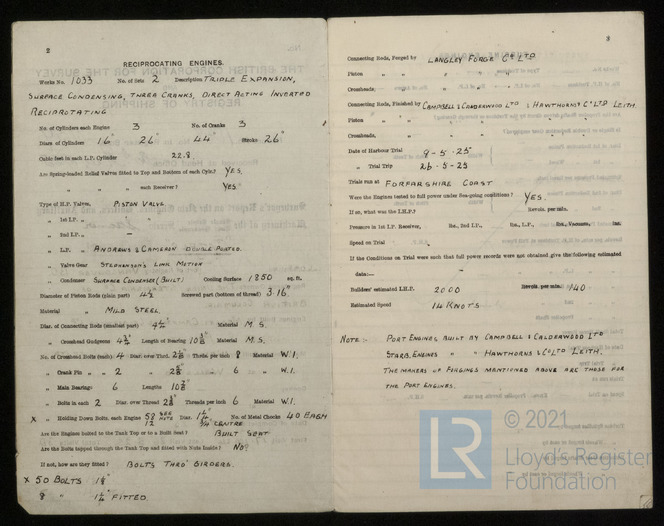 2
RECIPROCATING ENGINES.
Works No. 1033 No. of Sets 2 Description TRIPLE EXPANSION,
SURFACE CONDENSING, THREE CRANKS, DIRECT ACTING INVERTED
RECIPROTATING
No. of Cylinders each Engine 3 No. of Cranks 3
Diars of Cylinders 16" 26" 44" Stroke 26"
Cubic feet in each L.P. Cylinder 22.8
Are Spring-loaded Relief Valves fitted to Top and Bottom of each Cyl.? YES.
" " " each Receiver? YES.
Type of H.P. Valves, PISTON VALVE.
" 1st I.P. " "
" 2nd I.P. " —
" L.P. " ANDREWS & CAMERON DOUBLE PORTED.
" Valve Gear STEPHENSON'S LINK MOTION
" Condenser SURFACE CONDENSER (BUILT) Cooling Surface 1850 sq. ft.
Diameter of Piston Rods (plain part) 4½ Screwed part (bottom of thread) 3.16"
Material MILD STEEL.
Diar. of Connecting Rods (smallest part) 4½ Material M.S.
" Crosshead Gudgeons Length of Bearing Material M.S.
No. of Crosshead Bolts (each) 4 Diar. over Thrd. Thrds. per inch 8 Material W.I.
" Crank Pin " " 2 " " 6 " W.I.
" Main Bearings 6 Lengths
" Bolts in each 2 Diar. over Thread Threads per inch 6 Material W.I.
X " Holding Down Bolts, each Engine 58 SEE NOTE Diar. 1¼ No. of Metal Chocks 40 EACH
12 ¾ CENTRE
Are the Engines bolted to the Tank Top or to a Built Seat? BUILT SEAT
Are the Bolts tapped through the Tank Top and fitted with Nuts Inside? NO?
If not, how are they fitted? BOLTS THRO' GIRDERS.
X 50 BOLTS 1⅛"
8 " 1¼" FITTED.
3
Connecting Rods, Forged by LANGLEY FORGE Co LTD
Piston " "
Crossheads, " "
Connecting Rods, Finished by CAMPBELL & CALDERWOOD LTD & HAWTHORNS & Co LTD LEITH.
Piston " "
Crossheads, " "
Date of Harbour Trial 9-5-25
" Trial Trip 26-5-25
Trials run at FORFARSHIRE COAST
Were the Engines tested to full power under Sea-going conditions? YES.
If so, what was the I.H.P.? Revols. per min.
Pressure in 1st I.P. Receiver, lbs., 2nd I.P., lbs., L.P., lbs., Vacuum, ins.
Speed on Trial
If the Conditions on Trial were such that full power records were not obtained give the following estimated
data:—
Builders' estimated I.H.P. 2000 Revols. per min. 140
Estimated Speed 14 KNOTS
NOTE :- PORT ENGINES BUILT BY CAMPBELL & CALDERWOOD LTD
STARB. ENGINES " " HAWTHORNS & Co LTD LEITH.
THE MAKERS OF FORGINGS MENTIONED ABOVE ARE THOSE FOR
THE PORT ENGINES.
© 2021
LR
Lloyd's Register
Foundation